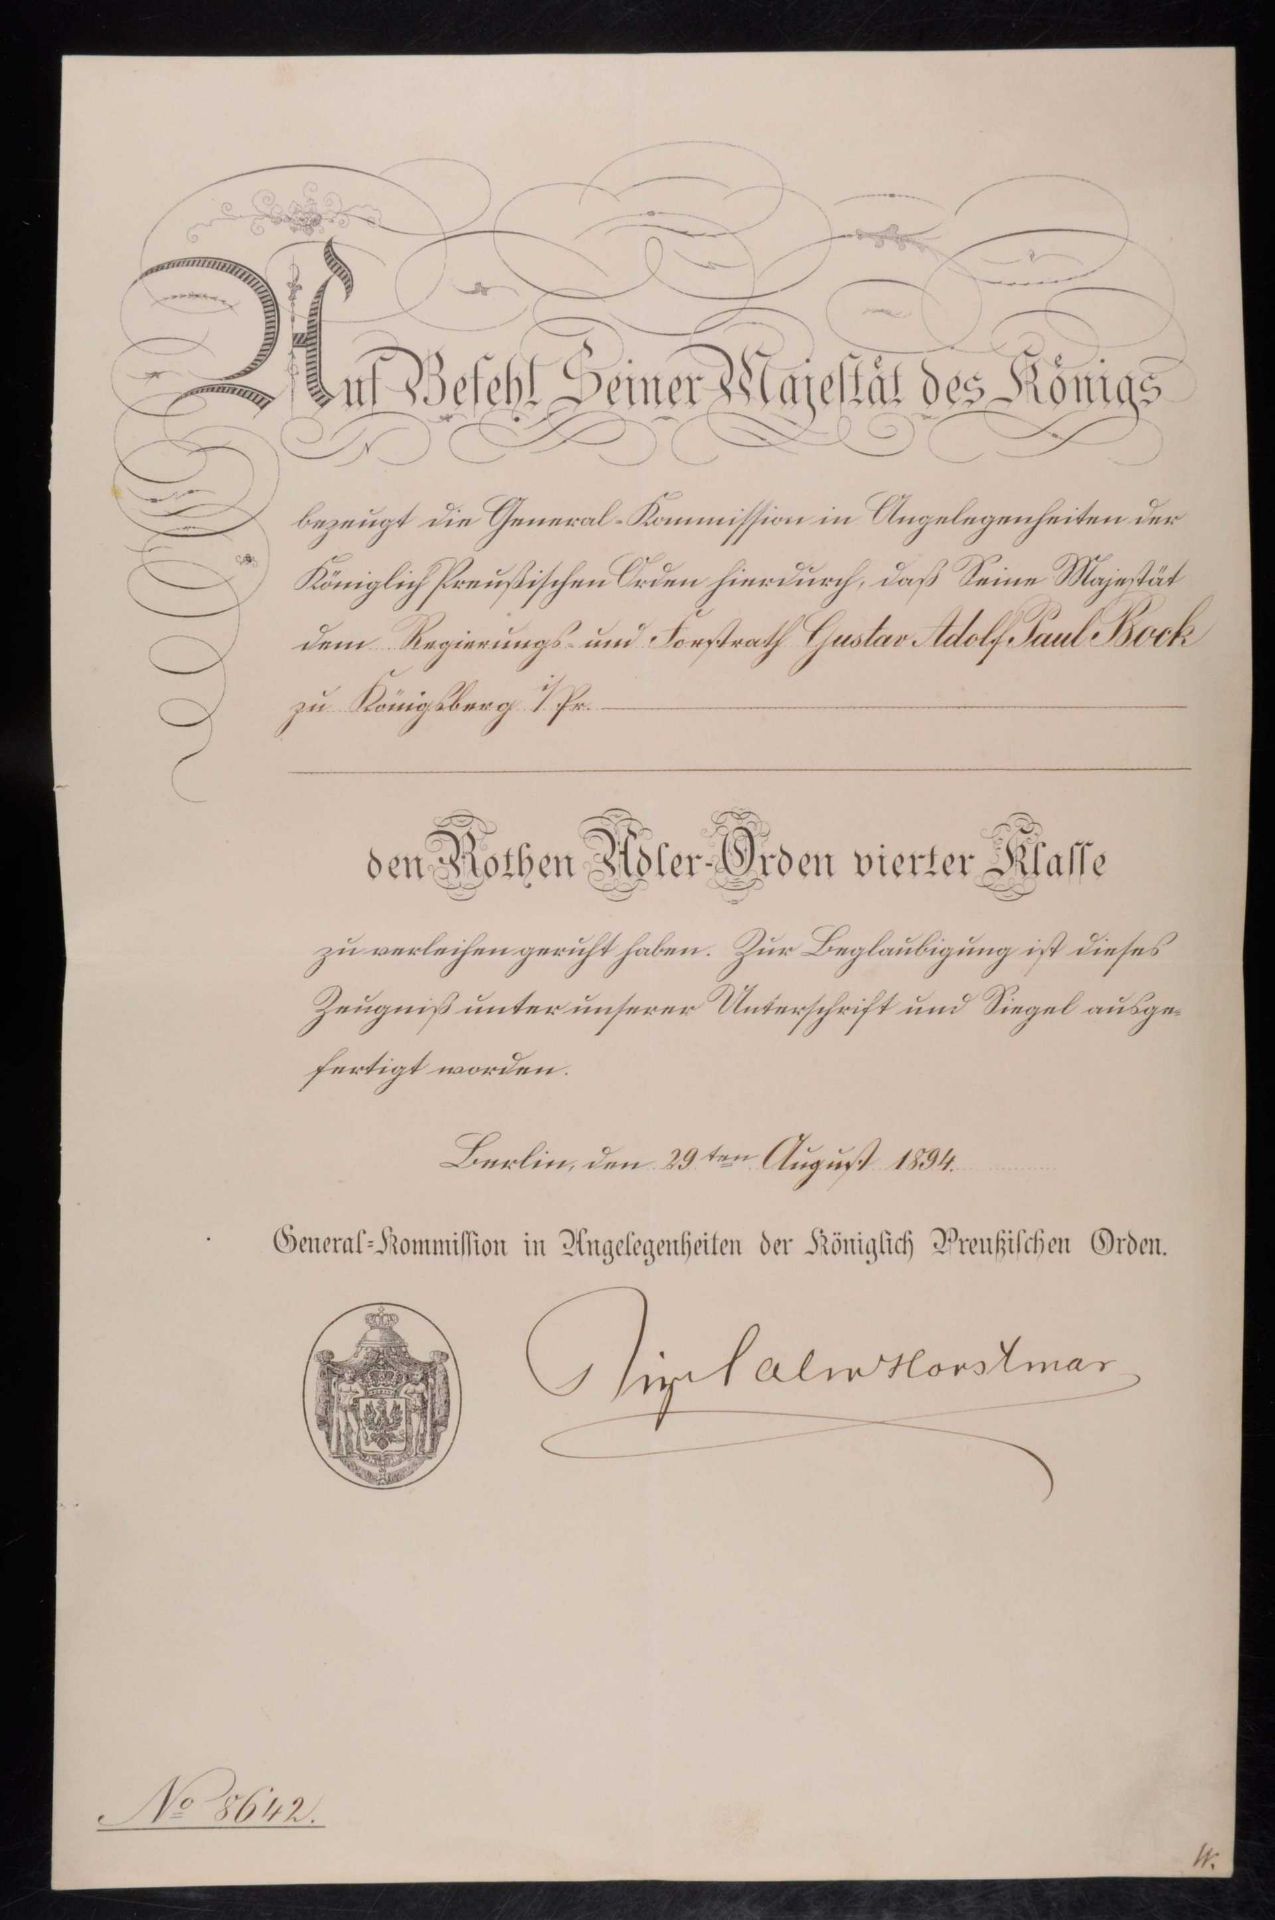 Auf Befehl Seiner Majestät des Königs
bezeugt die General-Kommission in Angelegenheiten der
Königlich Preußischen Orden hierdurch, daß Seine Majestät
dem Regierungs- und Forstrath Gustav Adolf Paul Bock
zu Königsberg i/Pr.
den Rothen Adler-Orden vierter Klasse
zu verleihen geruht haben. Zur Beglaubigung ist dieses
Zeugniß unter unserer Unterschrift und Siegel ausge-
fertigt worden.
Berlin, den 29ten August 1894.
General-Kommission in Angelegenheiten der Königlich Preußischen Orden.
Salm Horstmar
No 8642.
W.